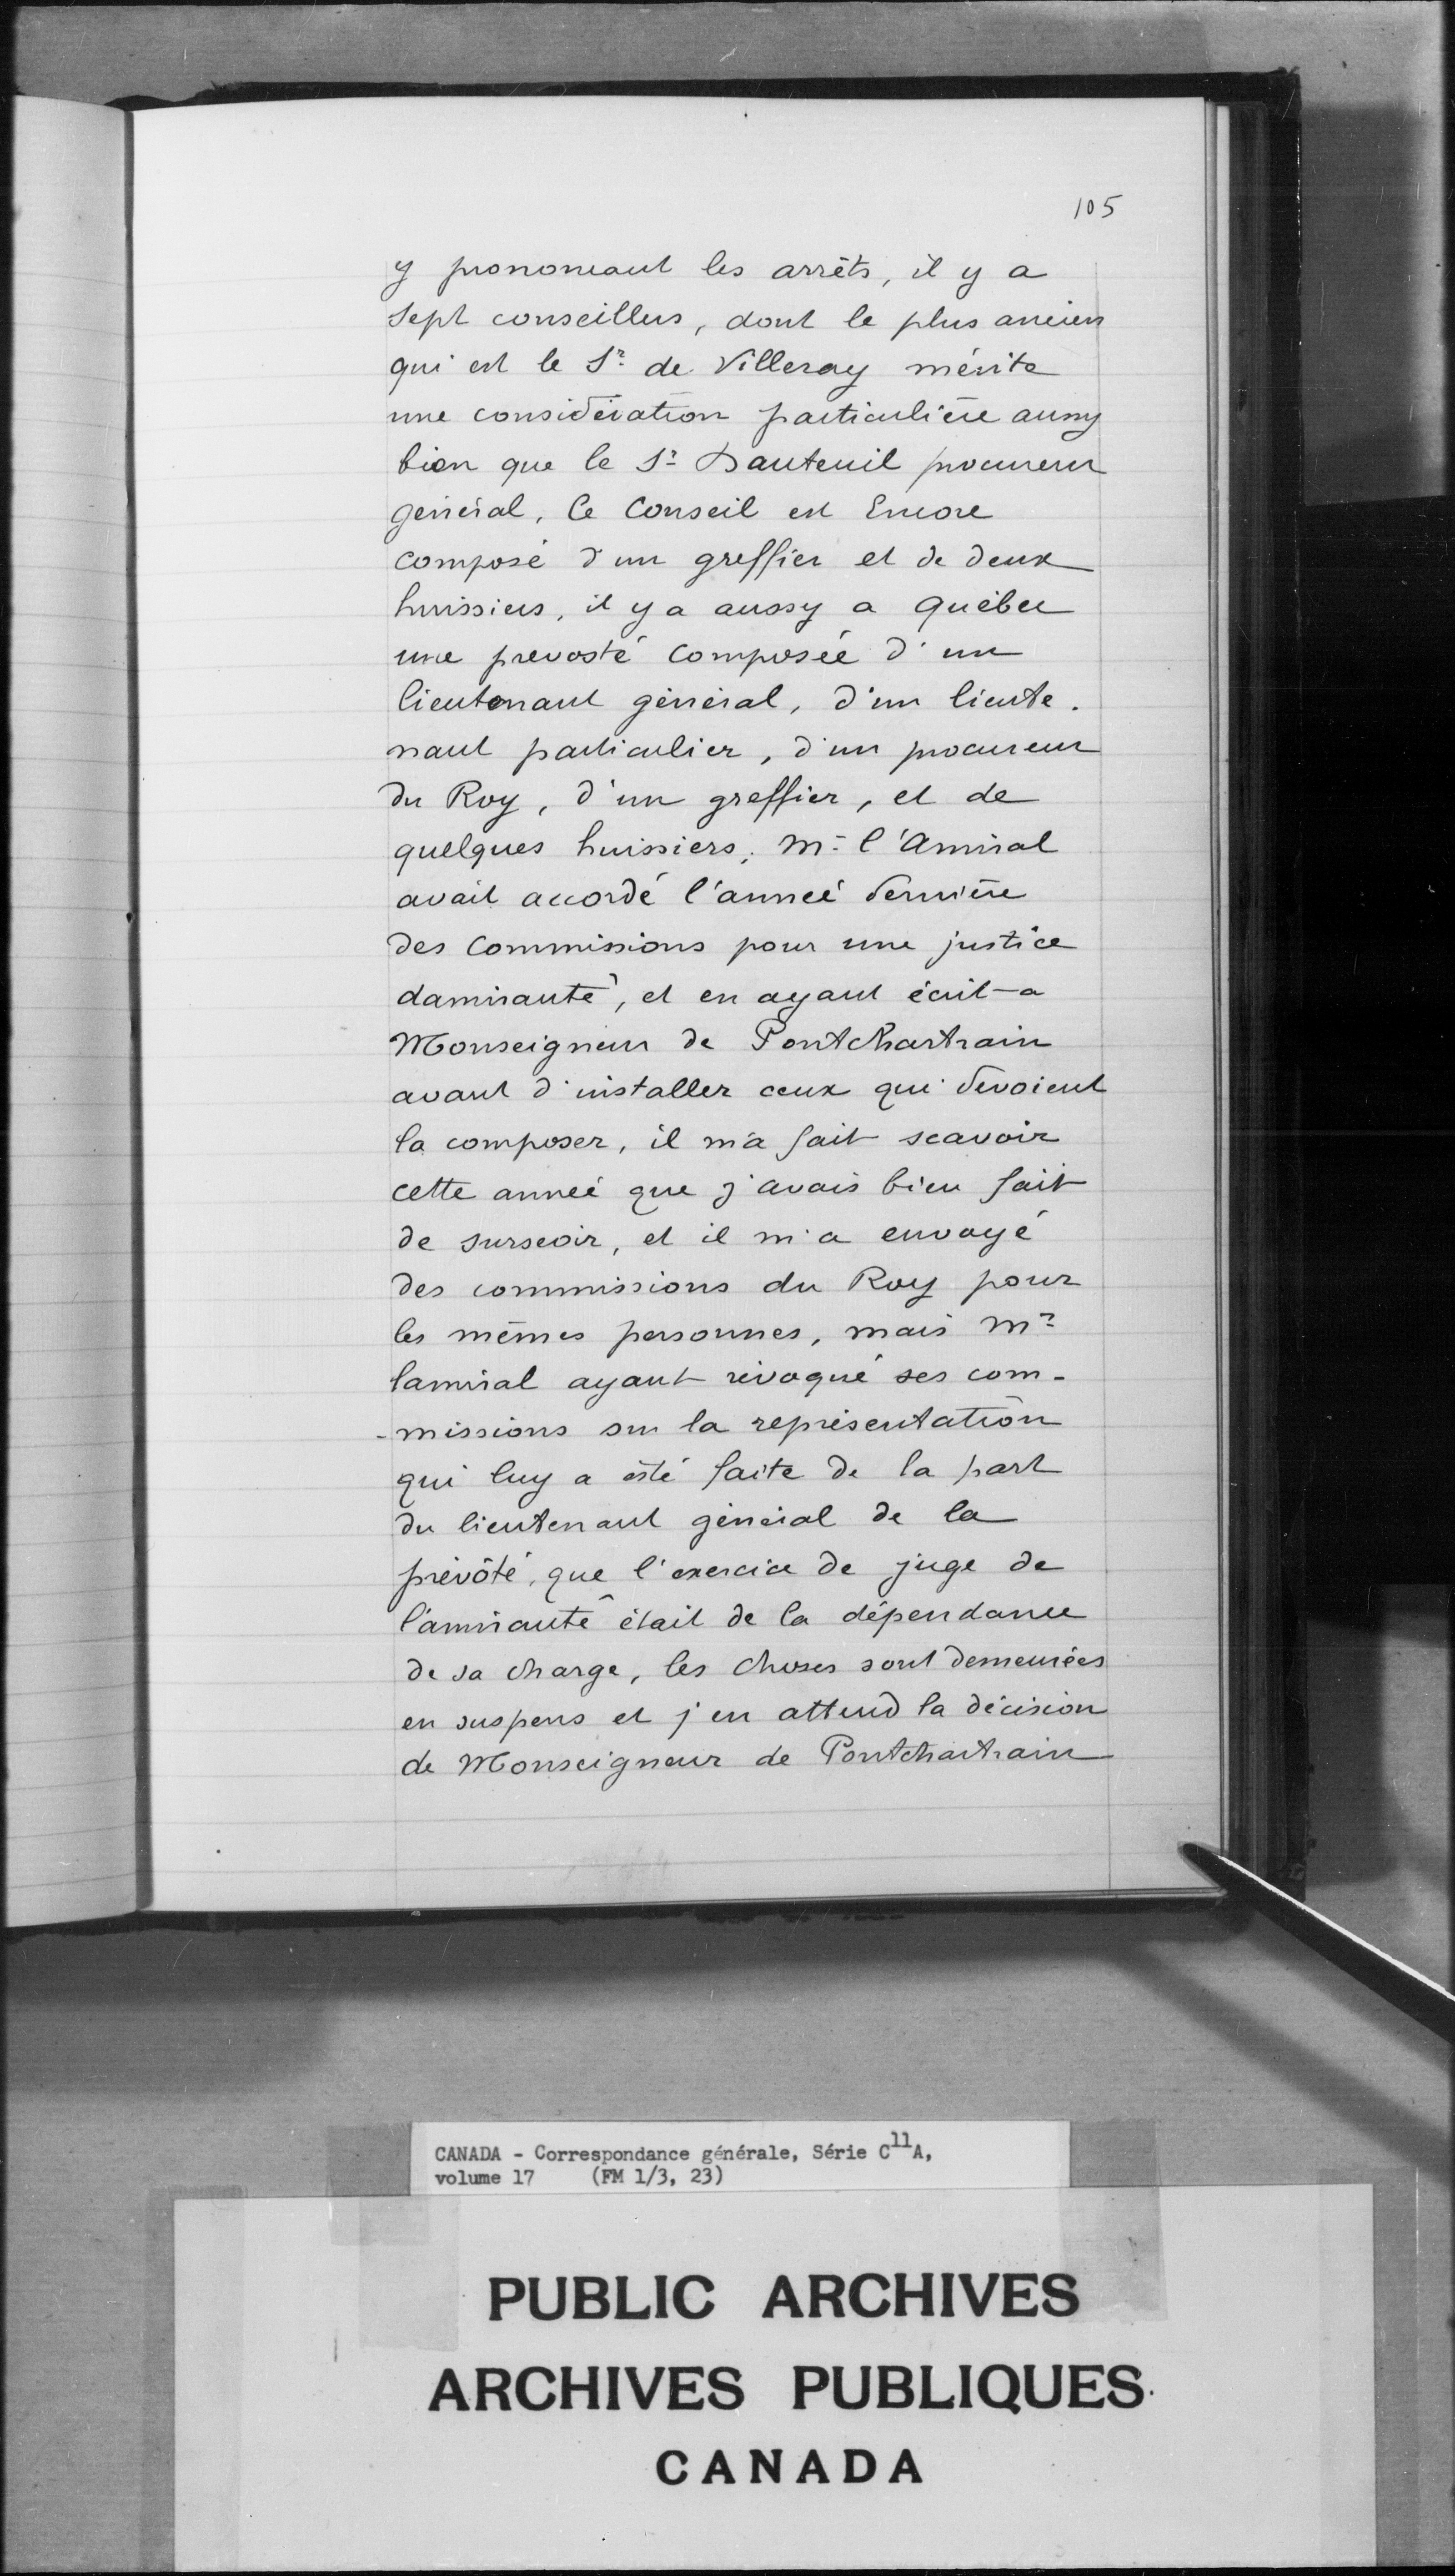 105
y prononceant les arrêts, il y a
sept conseillers, dont le plus ancien
qui est le Sr de Villeray mérite
une considération particulière aussy
bien que le Sr Dauteuil procureur
général, le Conseil est Encore
composé d'un greffier et de deux
huissiers, il y a aussy a Québec
une prevosté composée d'un
lieutenant général, d'un lieute.
nant particulier, d'un procureur
du Roy, d'un greffier, et de
quelques huissiers; Mr l'Amiral
avait accordé l'année dernière
des Commissions pour une justice
damirauté, et en ayant écrit a
Monseigneur de Pontchartrain
avant d'installer ceux qui devoient
la composer, il m'a fait scavoir
cette année que j'avais bien fait
de surseoir, et il m'a envoyé
des commissions du Roy pour
les mêmes personnes, mais Mr
lamiral ayant révoqué ses com-
-missions sur la représentation
qui luy a esté faite de la part
du lieutenant général de la
prévôté, que l'exercice de juge de
l'amirauté était de la dépendance
de sa charge, les choses sont demeurées
en suspens et j'en attend la décision
de Monseigneur de Pontchartrain
CANADA - Correspondance générale, Série C11A,
volume 17 (FM 1/3, 23)
PUBLIC ARCHIVES
ARCHIVES PUBLIQUES
CANADA